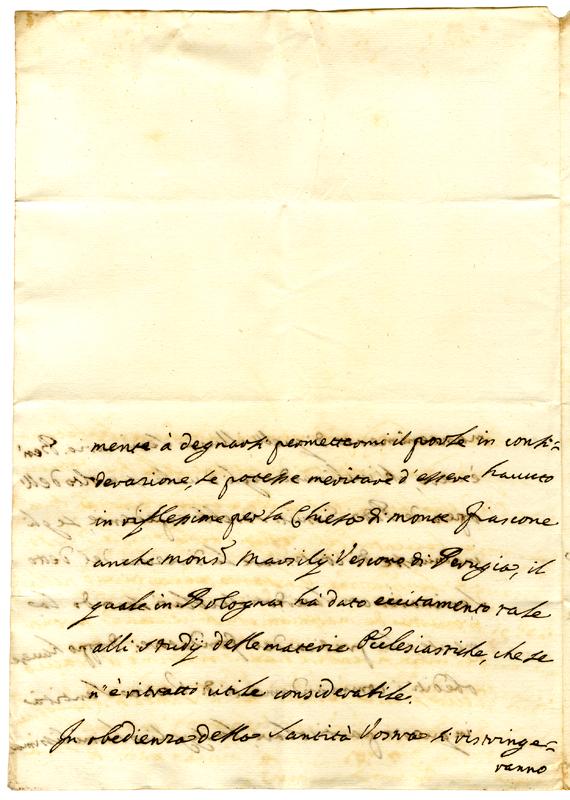 mente à degnarsi permettermi il porle in consi=
derazione, se potesse meritare d'essere havuto
in riflessione per la Chiesa di monte Fiascone
anche monsr. Marsilij Vescovo di Perugia, il
quale in Bologna hà dato eccitamento tale
alli studij delle materie Ecclesiastiche, che se
n'è ritratto utile considerabile.
In obedienza della Santità Vostra si ristringe=
ranno